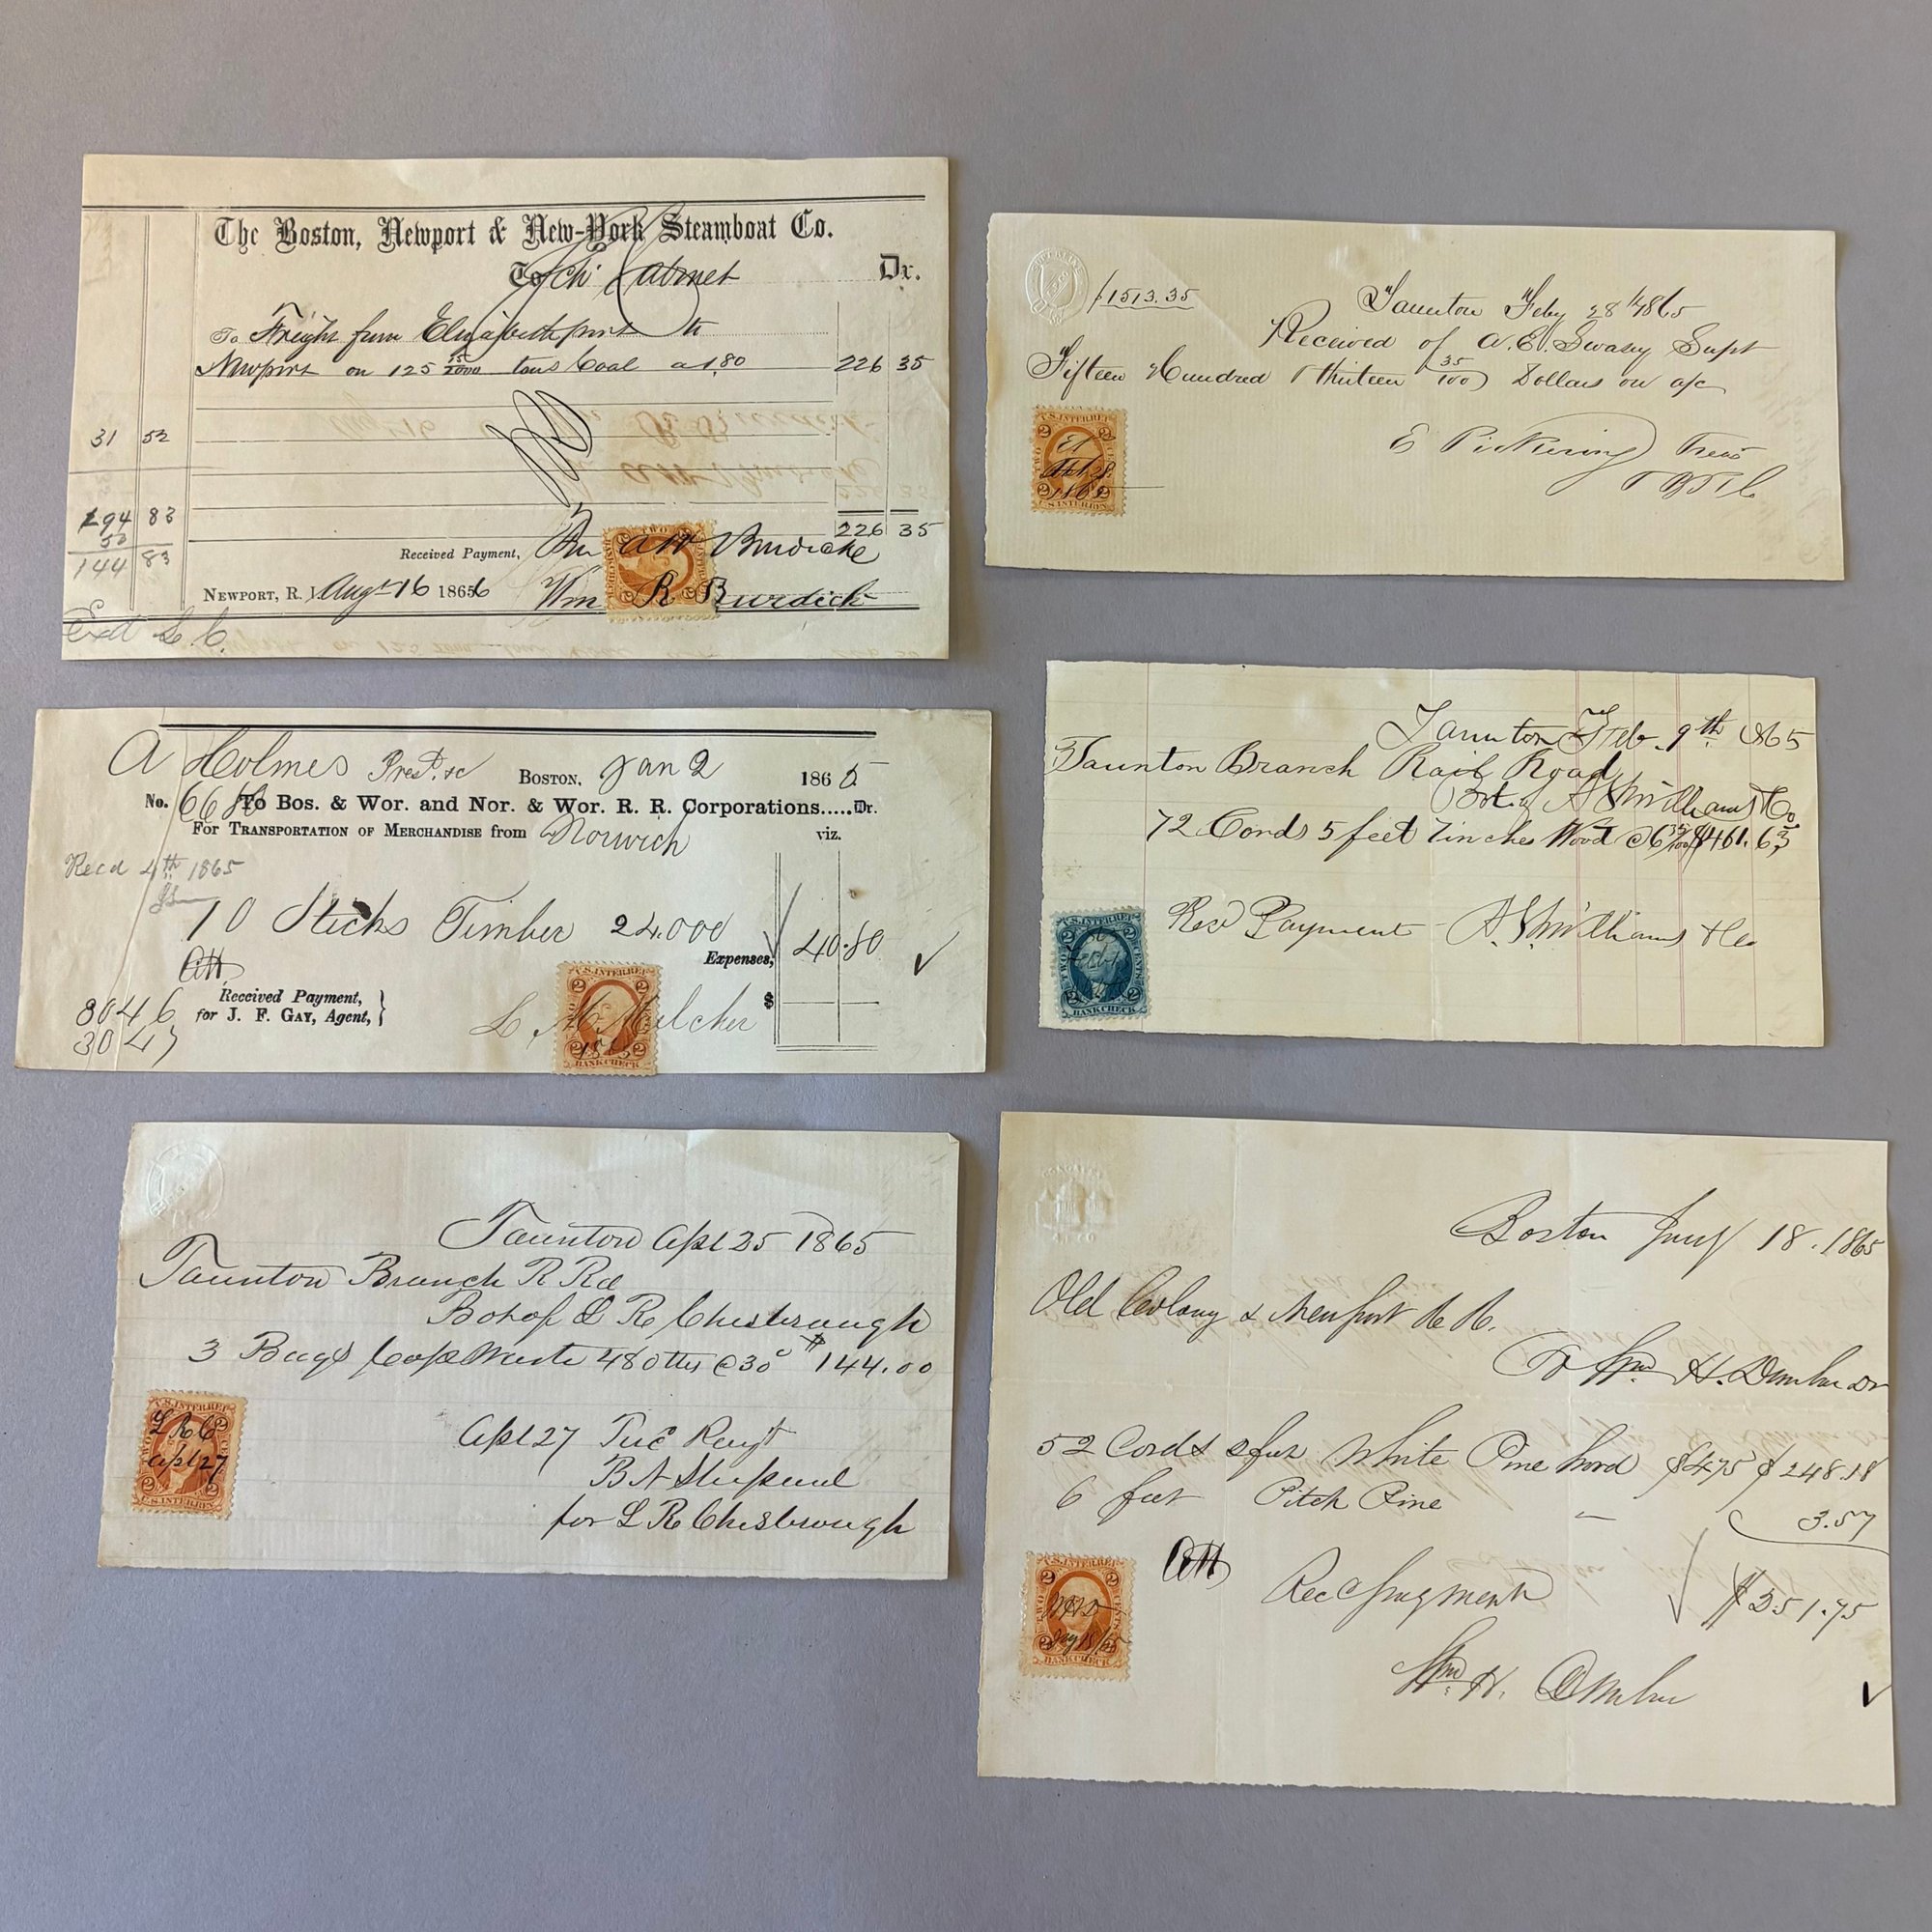 The Boston, Newport & New-York Steamboat Co.
To Sch Cabinet Dr.
To Freight from Elizabethport to
Newport on 125 15/2000 tons Coal a 1.80 226 35
31 52
194 83
50
144 83
226 35
Received Payment, A W Burdicke
Newport, R. I. Augt 16 1866
Wm R Burdick
Exd
$1513.35
Taunton Feby 28th 1865
Received of A. E. Swasey Supt
Fifteen Hundred & thirteen 35/100 Dollars on a/c
E Pickering Treas
U.S. INTER. REV.
2 2
Feb 28
1865
U.S. INTER. REV.
A Holmes Prest. &c Boston, Jan 2 1865
No. 66 To Bos. & Wor. and Nor. & Wor. R. R. Corporations.....Dr.
For Transportation of Merchandise from Norwich viz.
Recd 4th 1865
10 Sticks Timber 24.000
Expenses, 40.80
Received Payment,
for J. F. Gay, Agent, }
$
3046
3047
L. M. Melcher
U.S. INTER. REV.
2 2
BANK CHECK
Taunton Feb. 9th 1865
Taunton Branch Rail Road
Bot. of A S Williams & Co
72 Cords 5 feet 7 inches Wood @ 6 35/100 $461.63
Recd Payment A. S. Williams & Co
U.S. INTER. REV.
TWO CENTS
BANK CHECK
Taunton Apl 25 1865
Taunton Branch R Rd
Bot of L R Chesbrough
3 Bags Cop Waste 480 lbs @ 30c $144.00
Apl 27 Recd Payt
for L R Chesbrough
U.S. INTER. REV.
L R C
Apl 27
U.S. INTER. REV.
Boston Jany 18. 1865
Old Colony & Newport R. R.
To Wm. H. Dunbar Dr
52 Cords 2 feet White Pine Wood $4.75 $248.18
6 feet Pitch Pine 3.57
Recd payment $251.75
Wm. H. Dunbar
U.S. INTER. REV.
2 2
W H D
Jany 18/65
BANK CHECK